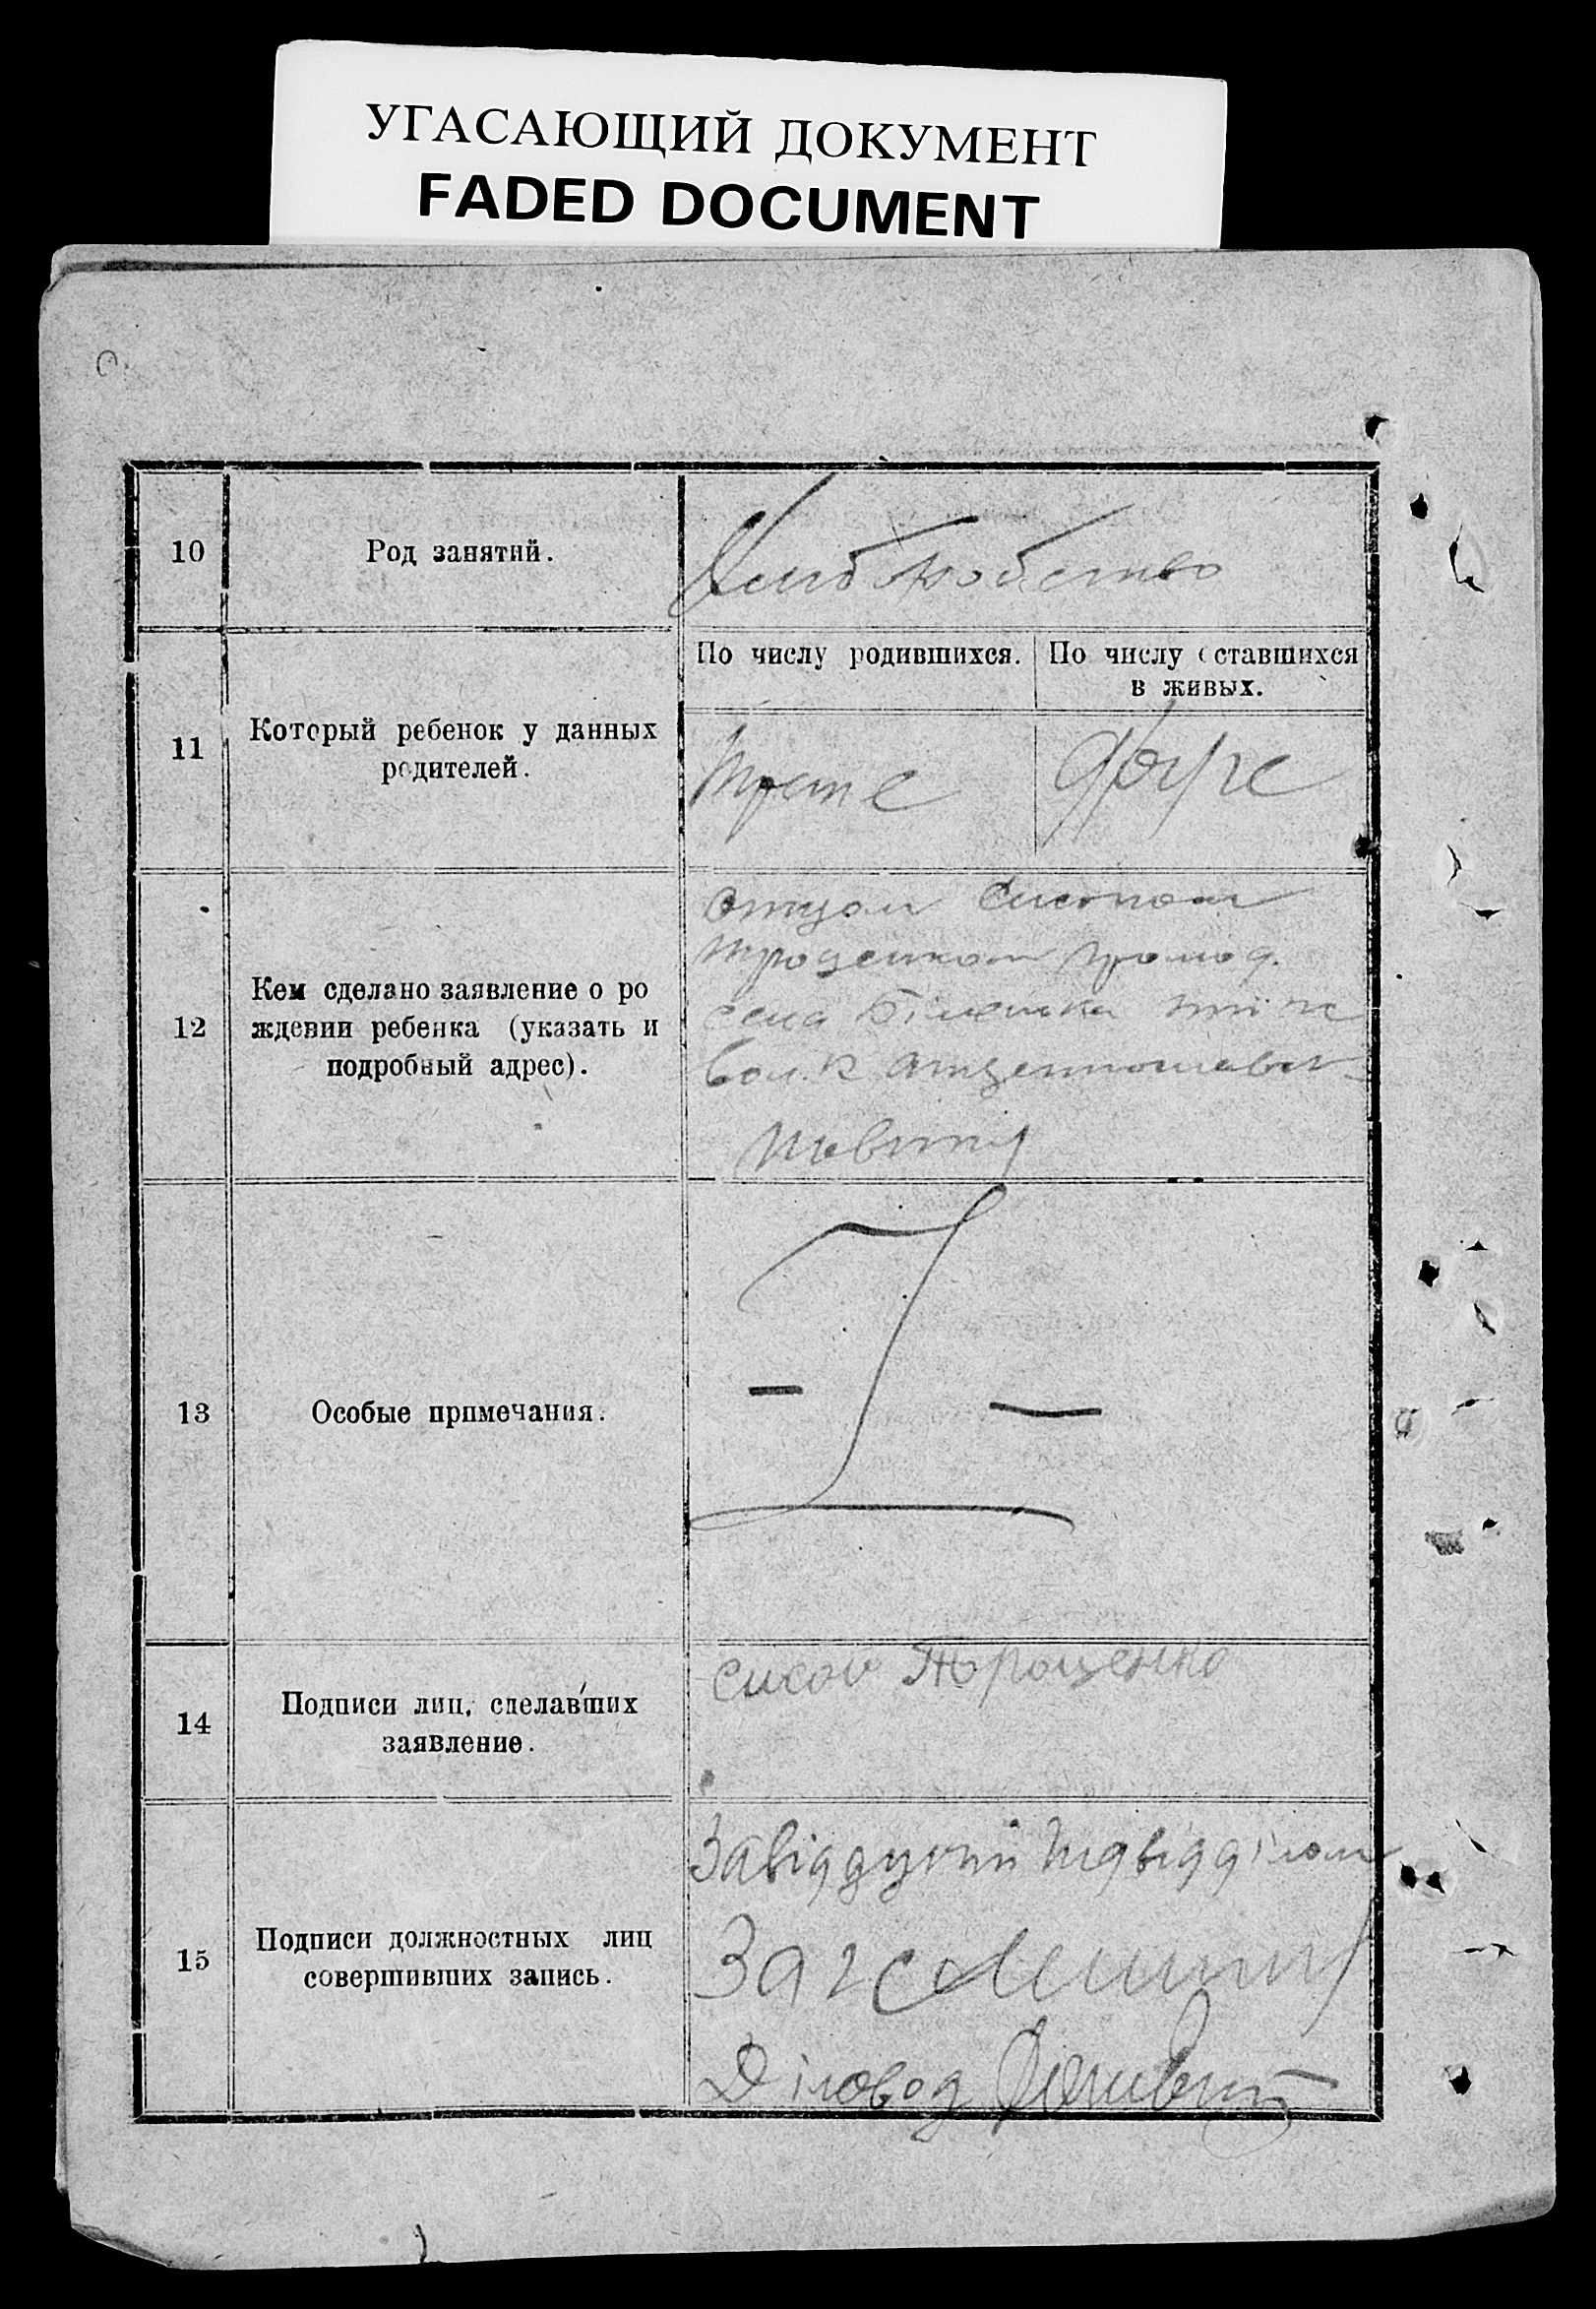 УГАСАЮЩИЙ ДОКУМЕНТ
FADED DOCUMENT
10
Род занятий.
Хлиборобство
11
Который ребенок у данных
родителей.
По числу родившихся.
По числу оставшихся
в живых.
трете
друге
12
Кем сделано заявление о ро
ждении ребенка (указать и
подробный адрес).
отцом
Троценком громад.
села
вол.
повіту
13
Особые примечания.
14
Подписи лиц, сделавших
заявление.
Троценко
15
Подписи должностных лиц
совершивших запись.
Завідуючий Підвідділом
Діловод